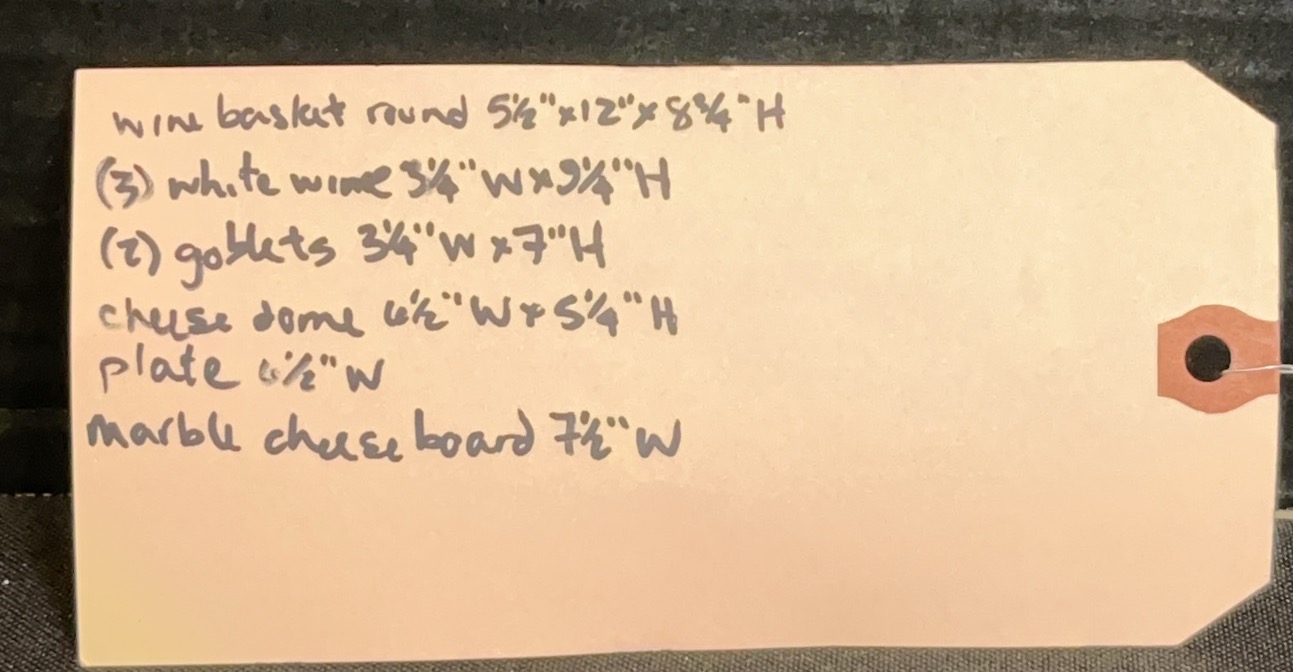 wine basket round 5½"x12"x8¾"H
(3) white wine 3¼"Wx9¼"H
(2) goblets 3¼"Wx7"H
cheese dome 6½"Wx5¼"H
plate 6½"W
marble cheese board 7½"W